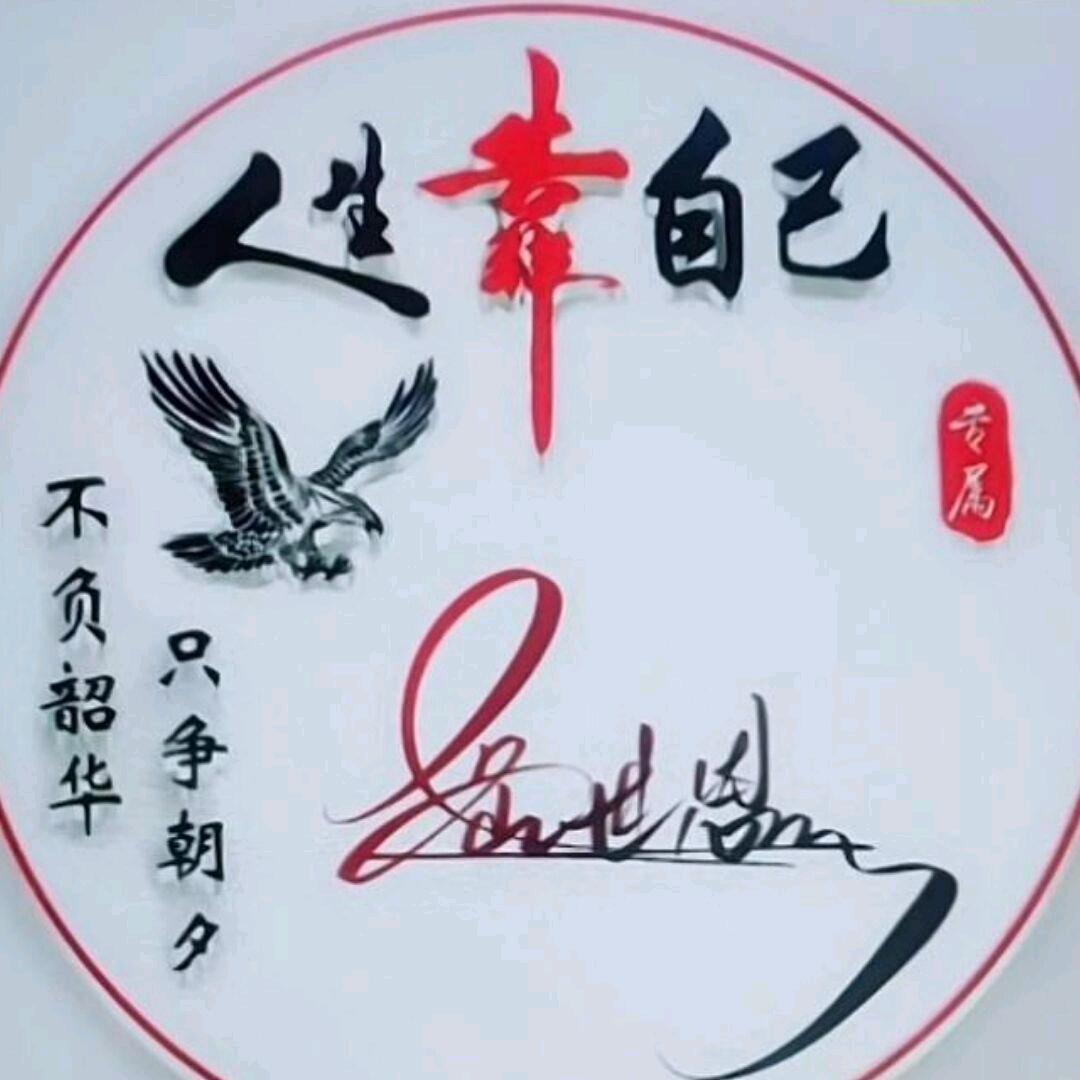 人生靠自己
专属
不负韶华
只争朝夕
世恩